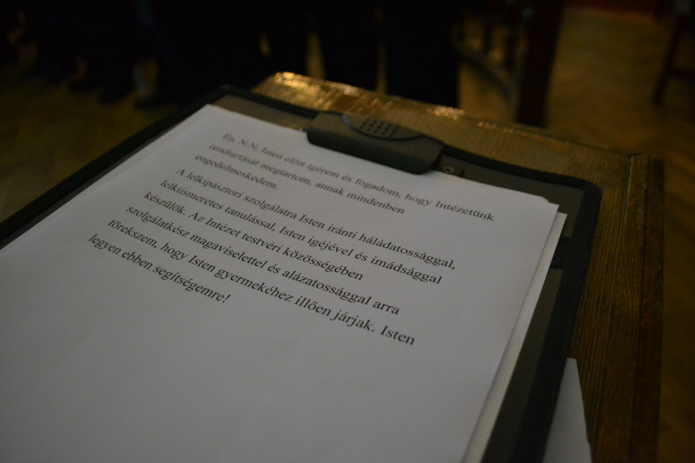 Én, N.N. Isten előtt ígérem és fogadom, hogy Intézetünk
rendtartását megtartom, annak mindenben
engedelmeskedem.
A lelkipásztori szolgálatra Isten iránti háládatossággal,
lelkiismeretes tanulással, Isten igéjével és imádsággal
készülök. Az Intézet testvéri közösségében
szolgálatkész magaviselettel és alázatossággal arra
törekszem, hogy Isten gyermekéhez illően járjak. Isten
legyen ebben segítségemre!